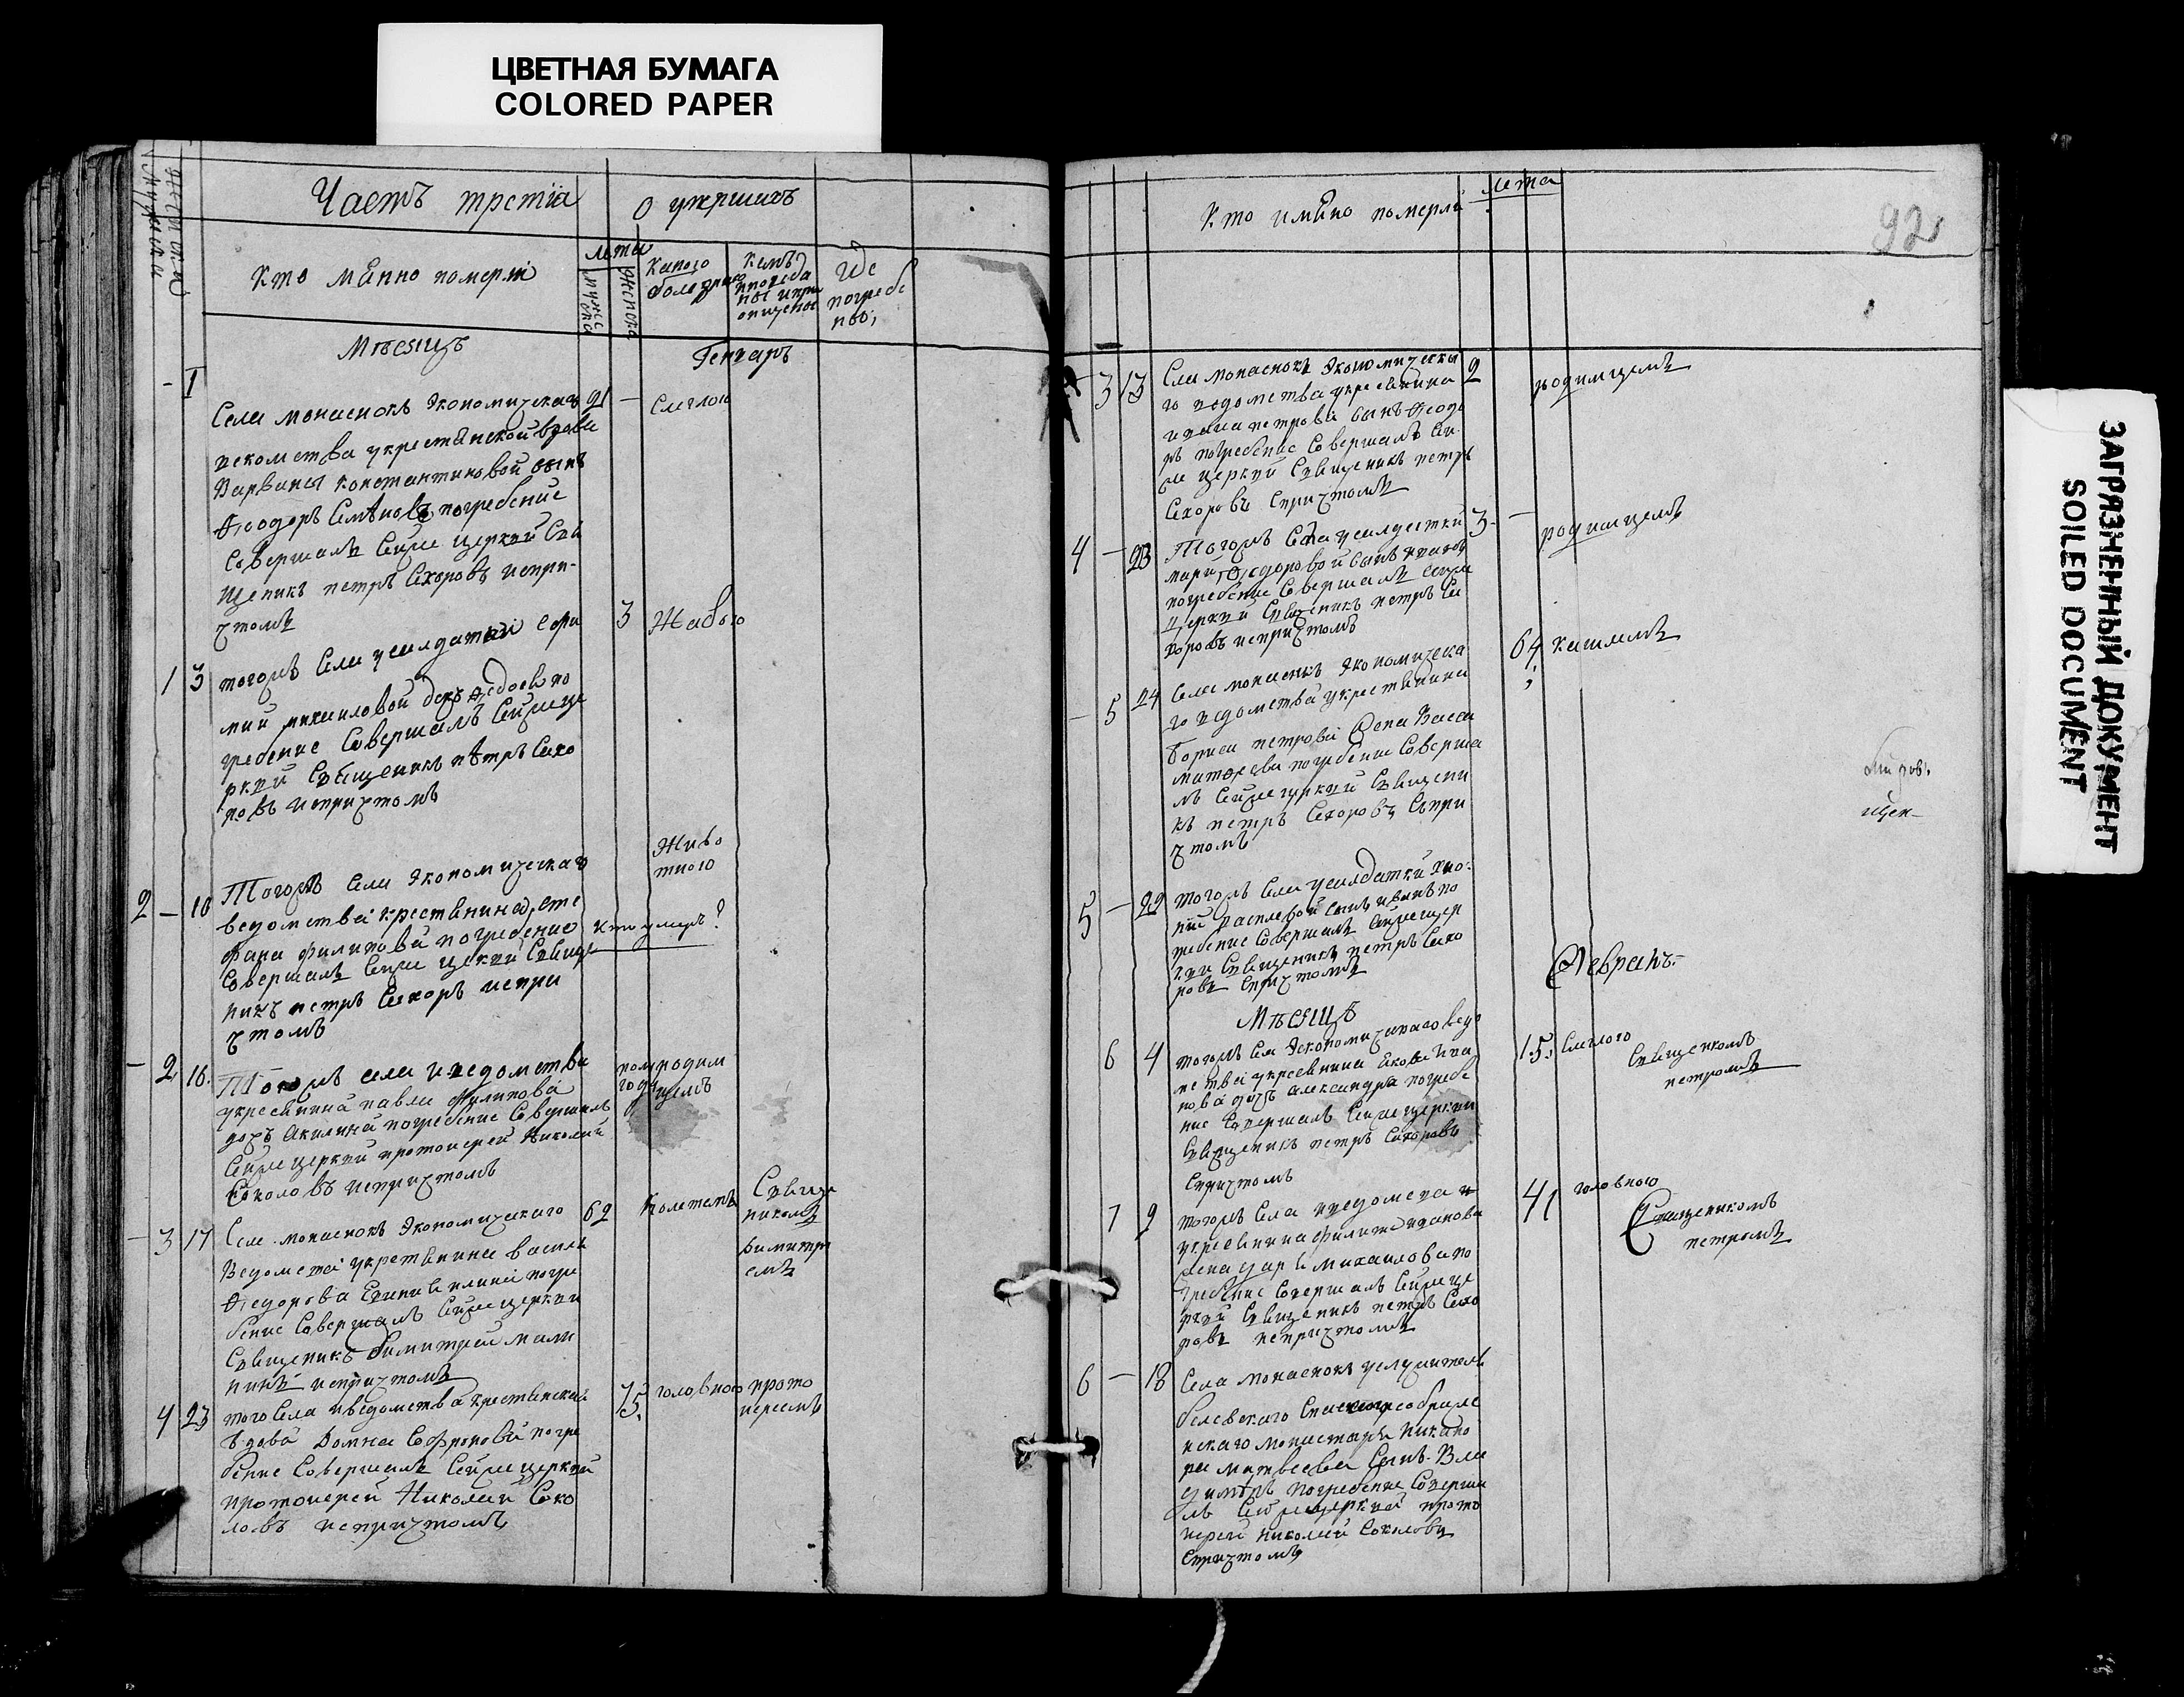 ЦВЕТНАЯ БУМАГА
COLORED PAPER
Часть третїа
О умершихъ
Кто имянно померлі
лета
мужеска
женска
Какою
болезнию
Кемъ
погреба
где
погребе
ны;
Месяцъ
Генварь
1
Села монаенокъ Экономическаго
ведомства у крестьянской вдовы
Варвары Константиновой сынъ
Феодоръ Семѣновъ погребение
Совершалъ Сейже церкви Свя
щеникъ петръ Сахоровъ испри-
чтомъ
21 —
Слеглою
1 3
тогожъ Села у салдатки Софи
мии михаиловой дочь Федосья по
гребение Совершалъ Сейже це
ркви Священикъ пѣтръ Сахо
ровъ испричтомъ
3
Жабою
2 — 10
Тогожъ Села Экономическаго
ведомства крестьянина сте
фана филипова погребение
Совершалъ Сейже церкви Священ
никъ петръ Сахоръ испри
чтомъ
кто умеръ?
Живо
тною
— 2 16.
Тогожъ села и ведомства
у кресьянина павла филипова
дочь Акилина погребение Совершалъ
Сейже церкви протоиерей Николай
Соколовъ испричтомъ
пол
года
родим
цемъ
— 3 17
Села монаенокъ Экономическаго
Ведомства у крестьянина василья
Феодорова погре
бение Совершалъ Сейже церкви
Священикъ Димитрей мали
нинъ испричтомъ
62
Колетьемъ
Священ
никомъ
Димитри
емъ
4 23
того Села и ведомства крестьянская
вдова Домна Софронова погре
бение Совершалъ Сейже церкви
протоиерей Николай Соко
ловъ испричтомъ
75.
головною
прото
иереемъ
Кто имяно померли
лета
92
3 13
Села монаенокъ Экономическа
го ведомства у кресьянина
ивана петрова сынъ Феодо
ръ погребение Совершалъ Се
же церкви Священикъ петръ
Сахоровъ Спричтомъ
2
родимцемъ
4 — 23
Тогожъ Села у салдатки
марии Федоровой сынъ
погребение Совершалъ сейже
церкви Священикъ петръ Са
хоровъ испричтомъ
3 —
родимцемъ
— 5 24
Села монаенокъ Экономическа
го ведомства у крестьянина
Бориса петрова жена Васса
матфеева погребение Соверша
лъ Сейже церкви Священи
къ петръ Сахоровъ Спри
чтомъ
64
кашлемъ
5 — 29
тогожъ Села у салдатки
павловой сынъ иванъ по
гребение Совершалъ Сейже цер
кви Священикъ петръ Сахо
ровъ Спричтомъ
Месяцъ
Февраль.
6 4
тогожъ Села Экономическаго ведо
мства у кресьянина
нова дочь александра погребе
ние Совершалъ Сейже церкви
Священикъ петръ Сахоровъ
Спричтомъ
15.
Слеглою
Священикомъ
петромъ
7 9
тогожъ Села и ведомства
у кресьянина филипа иванова
жена дарья михаилова по
гребение Совершалъ Сейже це
ркви Священикъ петръ Сахо
ровъ испричтомъ
41
головною
Священикомъ
петромъ
6 — 18
Села монаенокъ у служителя
белевскаго Спаскопреображе
нскаго монастыря никано
ра матвеева Сынъ Вла
димиръ погребение Соверша
лъ Сейже церкви прото
иерей николай Соколовъ
Спричтомъ
ЗАГРЯЗНЕННЫЙ ДОКУМЕНТ
SOILED DOCUMENT